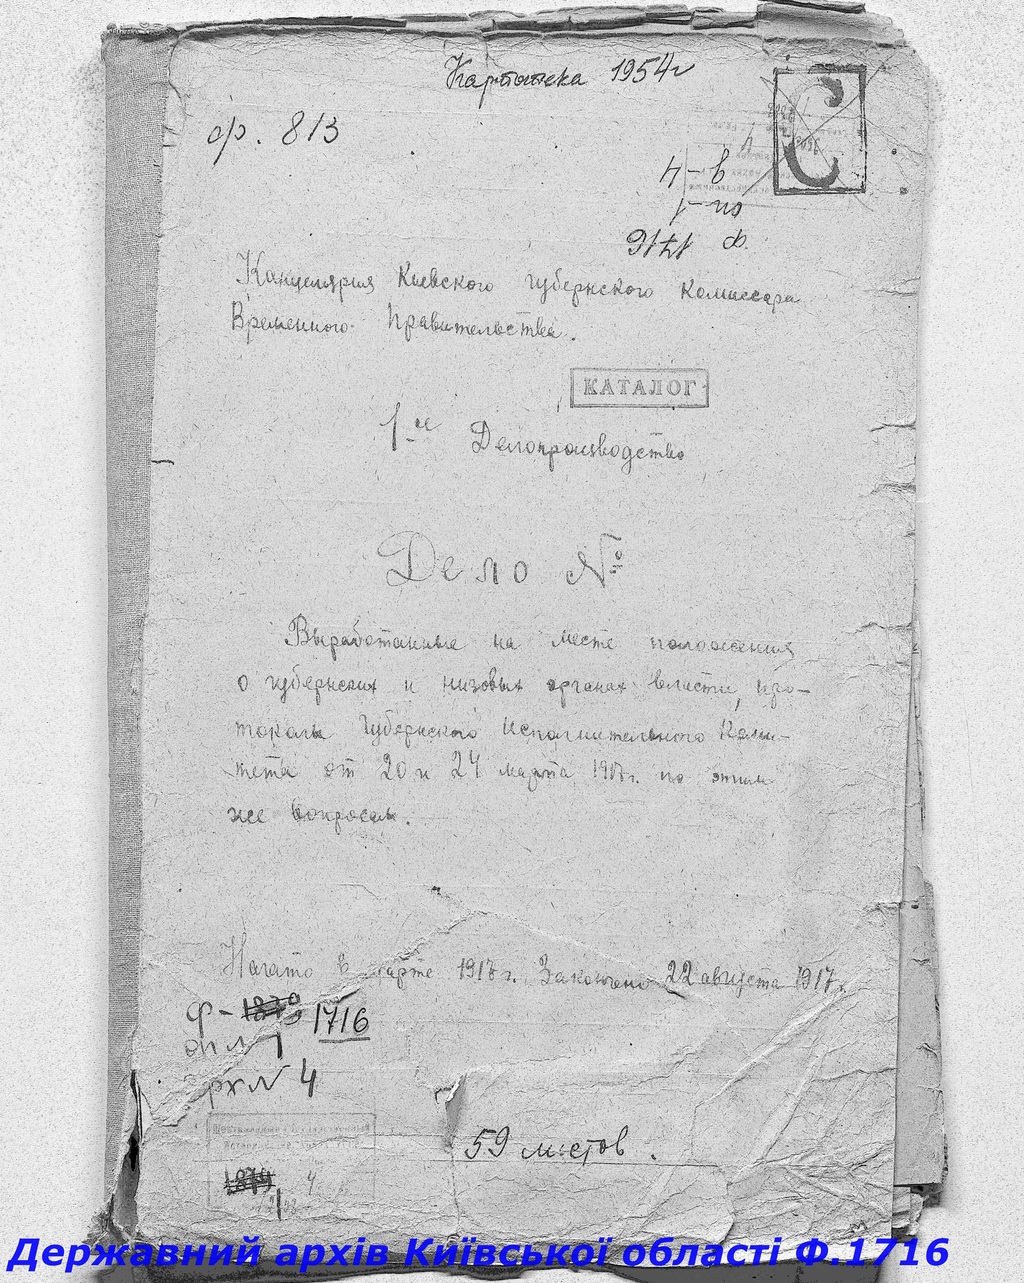 Картотека 1954 г
ф. 813
С
ф 1716
оп-1
4-в
Канцелярия Киевского Губернского Комиссара
Временного Правительства.
КАТАЛОГ
1-ое Делопроизводство
Дело №
Выработанные на месте положения
о губернских и низовых органах власти, про-
токолы Губернского Исполнительного Коми-
тета от 20 и 24 марта 1917г. по этим
же вопросам.
Начато в марте 1917г. Закончено 22 августа 1917г.
ф - 1879 1716
оп № 1
рх № 4
1879 4
59 листов.
Державний архів Київської області Ф.1716